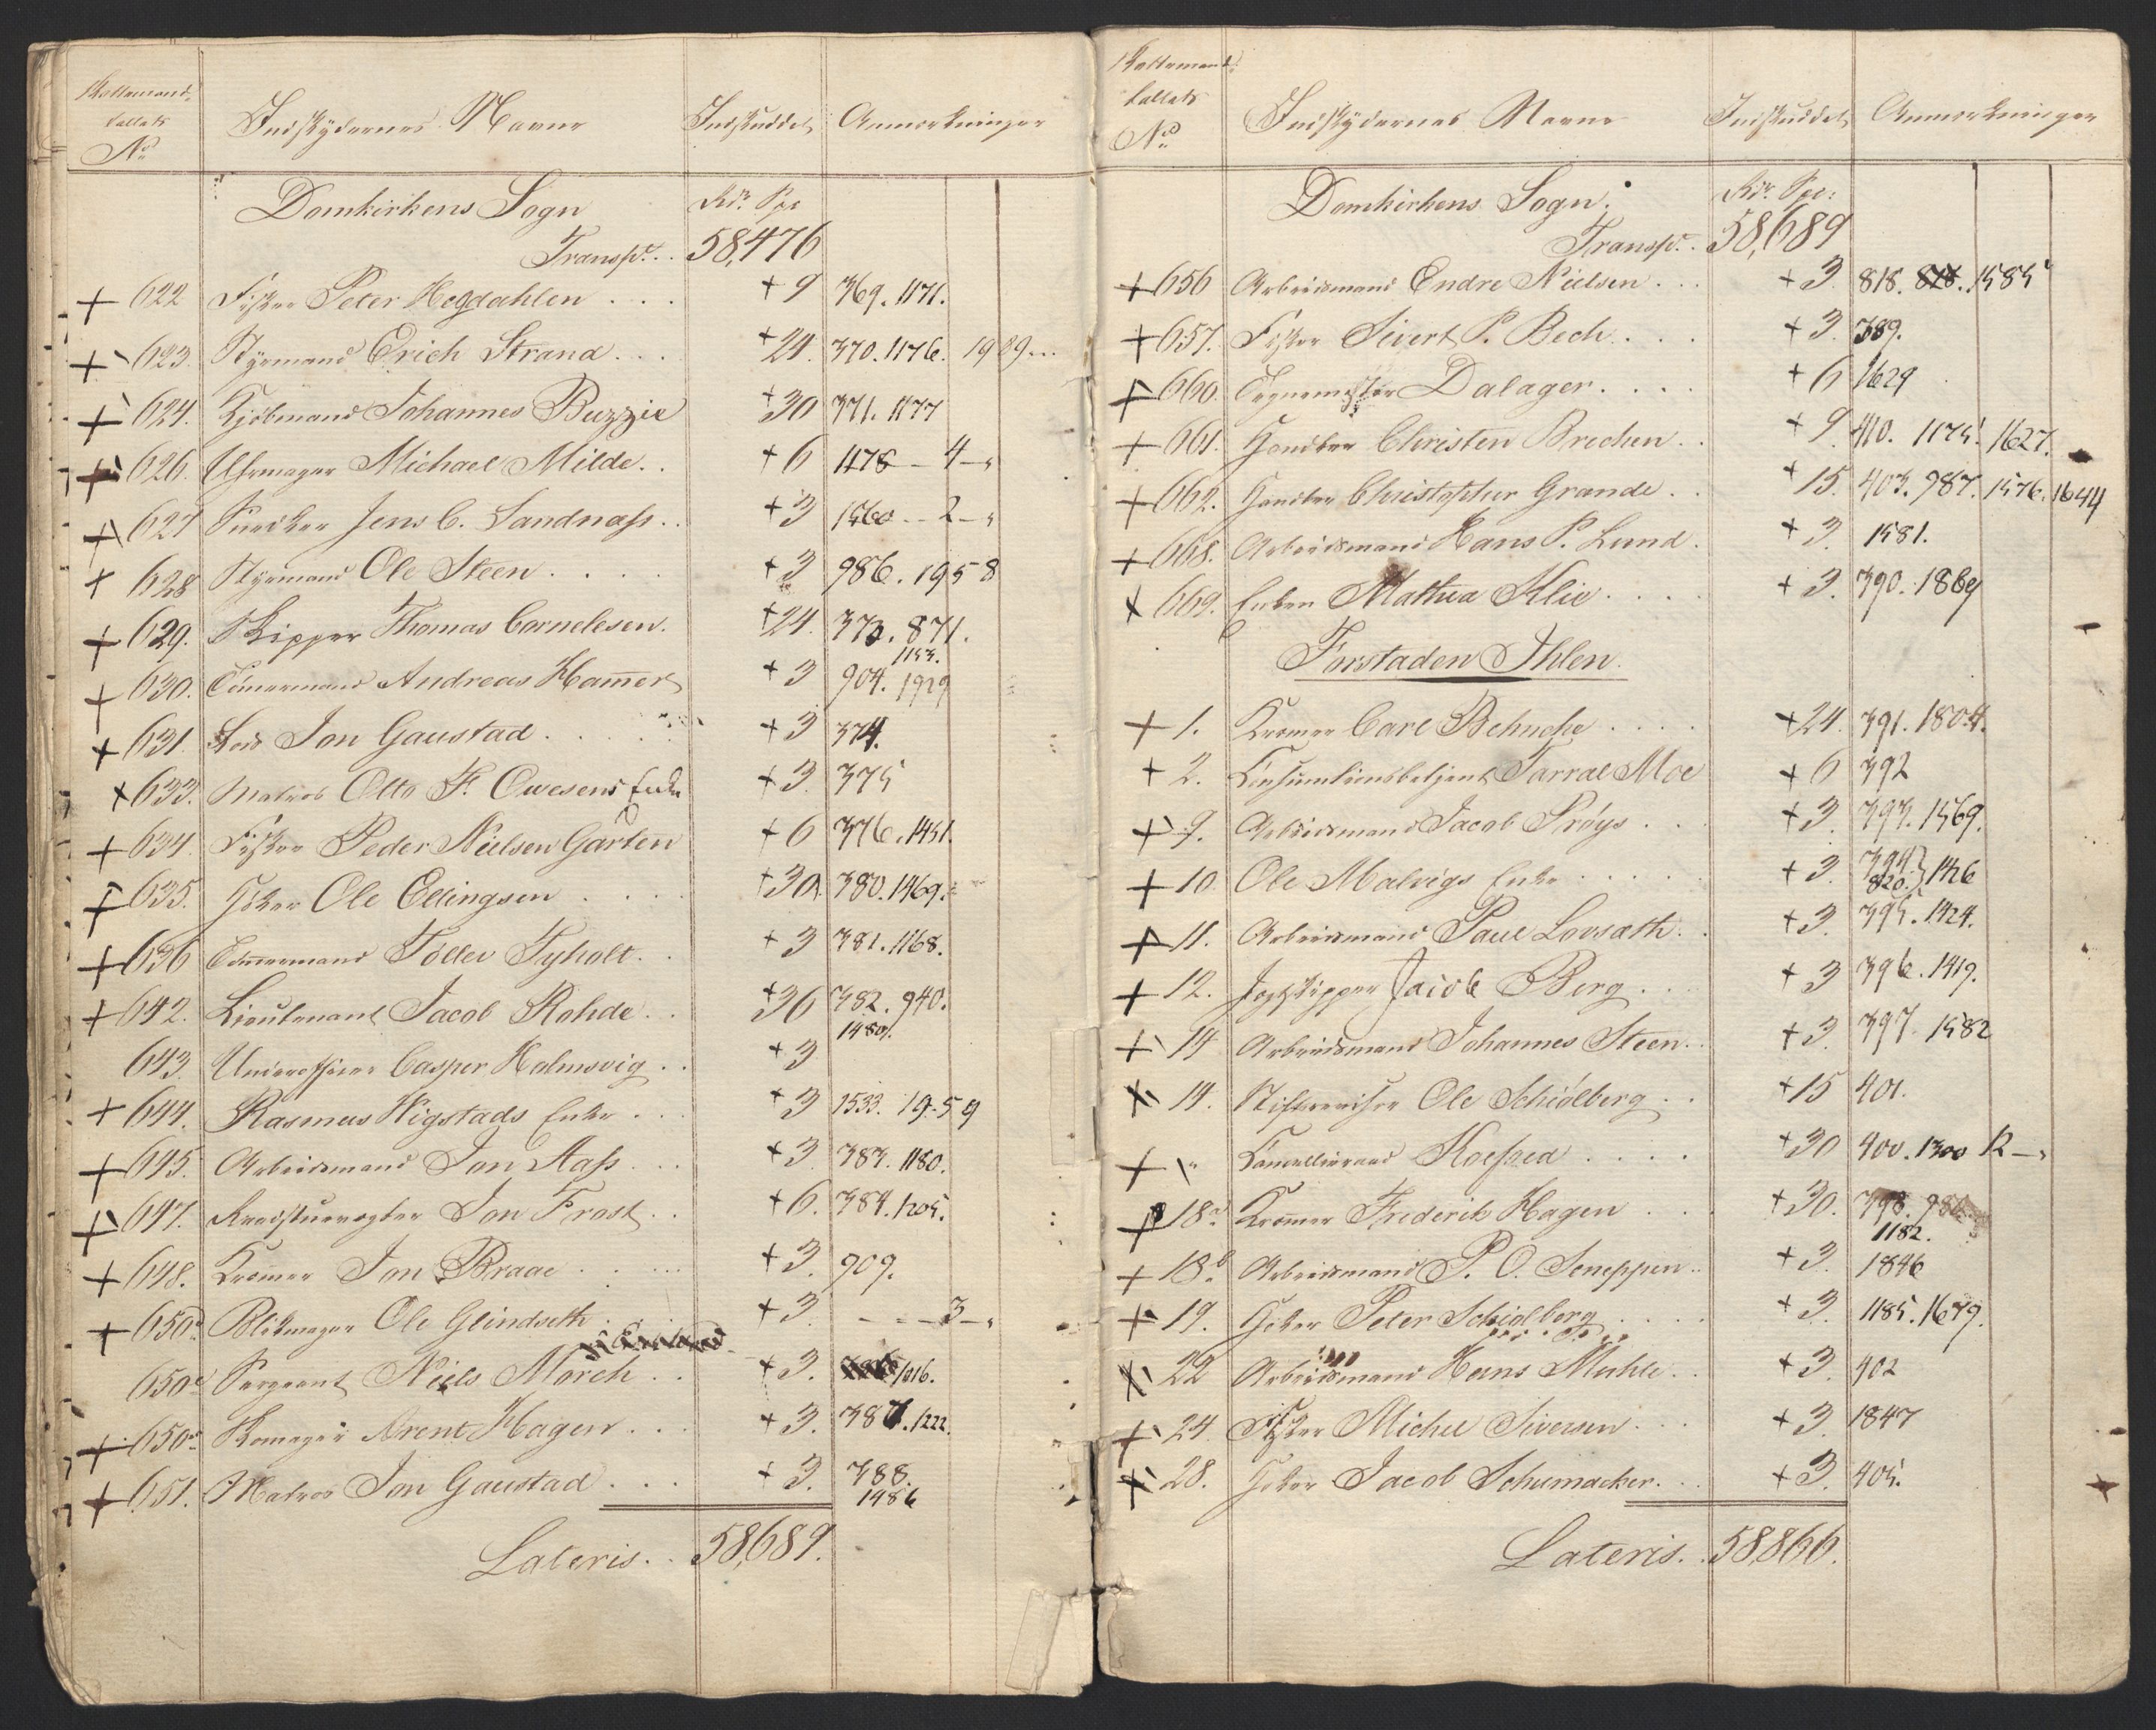 Skattemand-
tallets
No
Indskydernes Navne
Indskuddet
Anmerkninger
Domkirkens Sogn
Rdr. Spe
Transpt. . 58,476
+ 622 Fisker Peter Hegdahlen . . . + 9 369. 1171.
+ 623. Styrmand Erich Strand . . . + 24. 370. 1176. 1989...
+ 624. Kjöbmand Johannes Buzzie + 30 371. 1177
+ 626. Uhrmager Michael Milde . . + 6 1178 - 4 -
+ 627 Snedker Jens C. Sandnass . . + 3 1560 - - 2 -
+ 628 Styrmand Ole Steen . . . . + 3 986. 1958
+ 629. Skipper Thomas Cornelesen. + 24. 373. 871.
1153.
+ 630. Tömmermand Andreas Hammer + 3 904. 1929
+ 631. Lods Jon Gaustad . . . . + 3 374.
+ 633. Matros Otto F. Owesens Enke + 3. 375
+ 634. Fisker Peder Nielsen Garten + 6 376. 1451.
+ 635. Höker Ole Ellingsen . . . . + 30. 380. 1469.
+ 636 Tömmermand Toller Tyholt . . + 3 381. 1168.
+ 642. Lieutenant Jacob Rohde . . + 36 382. 940.
1480.
643. Underofficer Casper Halmsvig . . + 3
+ 644. Rasmus Wigstads Enke . . . + 3 1533. 1959
+ 645. Arbeidsmand Jon Aass . . . + 3. 383. 1180.
+ 647. Raadstuevogter Jon Frost . . + 6. 384. 1205.
+ 648. Kræmer Jon Braae . . . . + 3. 909.
+ 650 Blikmager Ole Glindseth . + 3. - - - 3 -
650 Sergeant Niels Morch . . + 3. 1016.
+ 650 Skomager Arent Hagen . . . + 3. 387. 1222.
+ 651. Matros Jon Gaustad . . . + 3. 388.
1486
Lateris . . 58,689.
Skattemand-
tallets
No
Indskydernes Navne
Indskuddet
Anmerkninger
Domkirkens Sogn.
Rdr. Spe:
Transpt. . 58,689
+ 656 Arbeidsmand Endre Nielsen . . . + 3. 818. 818. 1585
+ 657. Fisker Sivert P. Bech . . . . + 3. 389.
+ 660. Tegnemester Dalager . . . . + 6 1629
+ 661. Handler Christen Brechen . . + 9. 410. 1175. 1627.
+ 662. Handler Christopher Grande . . + 15. 403. 987. 1576. 1644
+ 668. Arbeidsmand Hans P. Lund. + 3. 1581.
+ 669. Enken Mathea Klie . . . . + 3. 390. 1869
Forstaden Ihlen.
+ 1. Kræmer Carl Behncke . . . . + 24. 391. 1804.
+ 2. Consumtionsbetjent Tarral Moe + 6 392
+ 9. Arbeidsmand Jacob Prøys . . . + 3. 393. 1569.
+ 10. Ole Malvigs Enke . . . . . + 3. 394 } 1426
820. }
+ 11. Arbeidsmand Paul Lovsath. . + 3. 395. 1424.
+ 12. Jagtskipper Jacob Berg . . . + 3 396. 1419.
+ 14 Arbeidsmand Johannes Steen . . + 3. 397. 1582
+ 14. Stiftsreviser Ole Schiölberg . . + 15 401.
+ " Cancelliraad Koefoed . . . . + 30 400. 1300 12 -
+ 18a Kræmer Frederik Hagen . . . + 30. 398. 980.
1182.
+ 18b Arbeidsmand P. O. Seneppen . . + 3. 1846
+ 19. Höker Peter Schiolberg . . . . + 3. 1185. 1679.
+ 22 Arbeidsmand Hans Muhle . . + 3. 402
+ 24. Fisker Michel Siversen . . . + 3. 1847
+ 28. Höker Jacob Schumacher . . . + 3. 405.
Lateris . . 58,866.